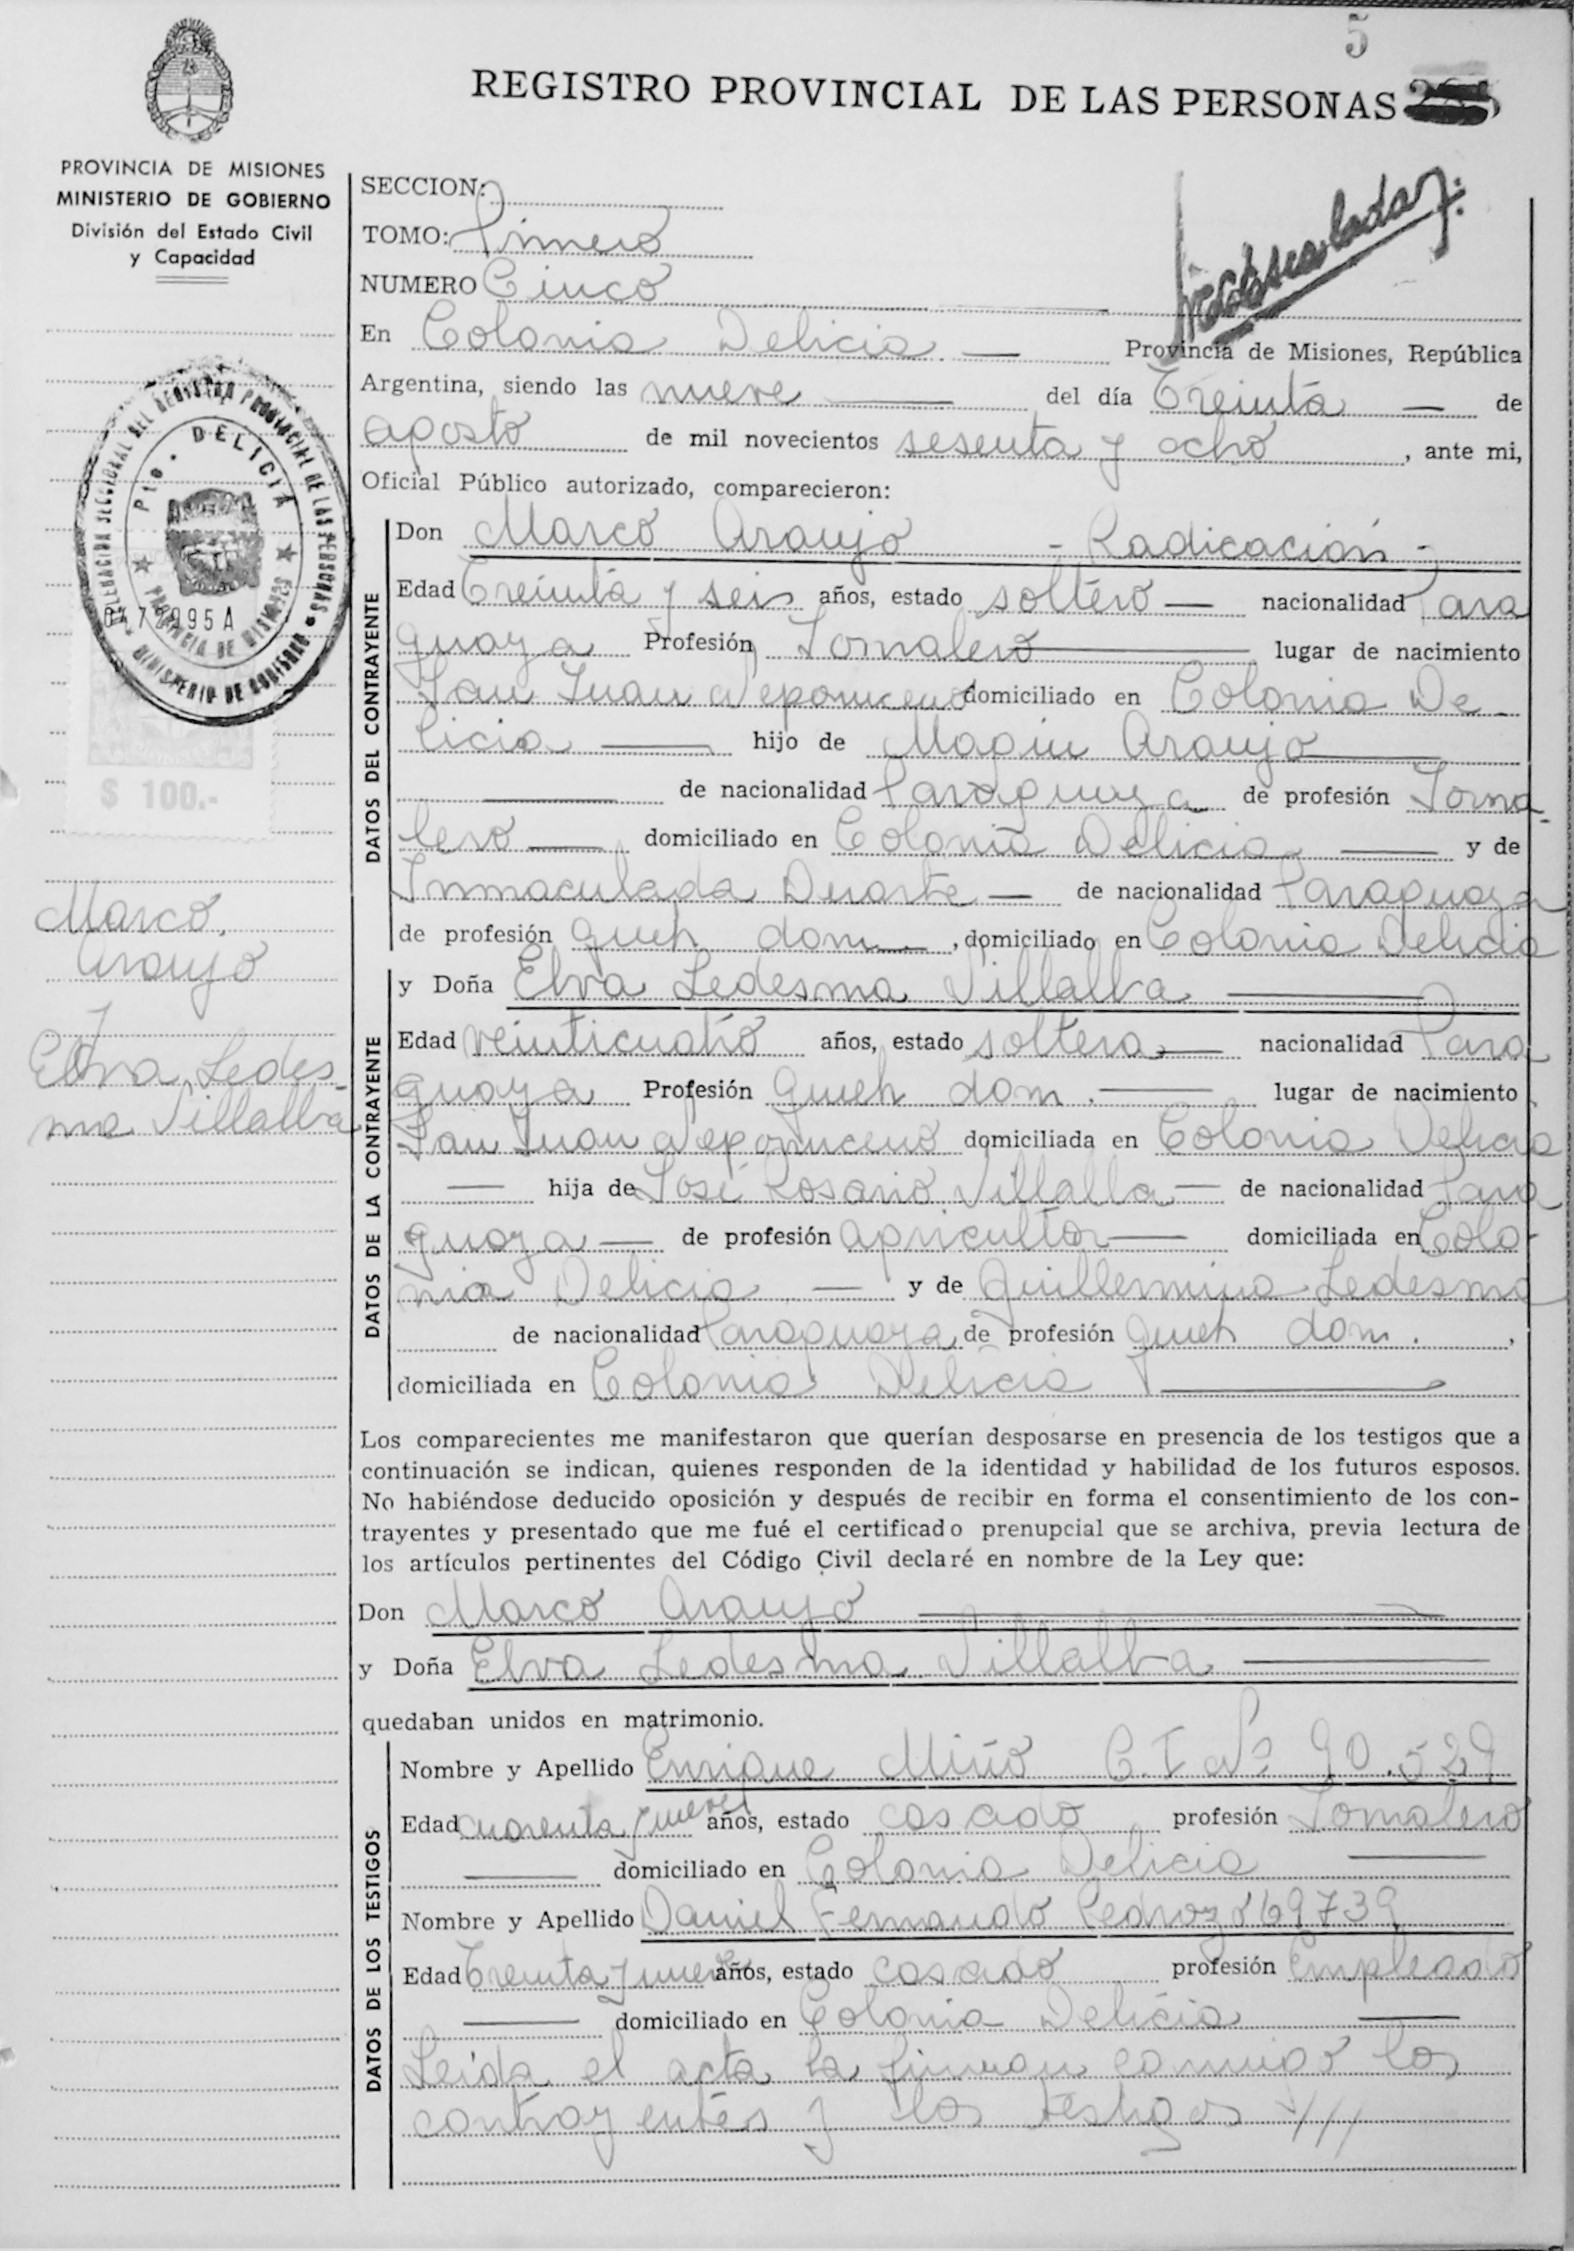 5
REGISTRO PROVINCIAL DE LAS PERSONAS
PROVINCIA DE MISIONES
MINISTERIO DE GOBIERNO
División del Estado Civil
y Capacidad
DELEGACION SECCIONAL DEL REGISTRO PROVINCIAL DE LAS PERSONAS
Pto. DELICIA
PROVINCIA DE MISIONES
MINISTERIO DE GOBIERNO
995A
$ 100.-
Marco
Araujo
y
Elva Ledes-
ma Villalba
SECCION:
TOMO: Primero
NUMERO Cinco
En Colonia Delicia — Provincia de Misiones, República
Argentina, siendo las nueve — del día Treinta — de
agosto de mil novecientos sesenta y ocho, ante mi,
Oficial Público autorizado, comparecieron:
DATOS DEL CONTRAYENTE
Don Marco Araujo - Radicación -
Edad Treinta y seis años, estado soltero — nacionalidad Para
guaya Profesión Jornalero — lugar de nacimiento
San Juan Nepomuceno domiciliado en Colonia De-
licia — hijo de Magin Araujo —
— de nacionalidad Paraguaya de profesión Jorna-
lero — domiciliado en Colonia Delicia — y de
Inmaculada Duarte — de nacionalidad Paraguaya
de profesión queh dom —, domiciliado en Colonia Delicia
DATOS DE LA CONTRAYENTE
y Doña Elva Ledesma Villalba —
Edad veinticuatro años, estado soltera — nacionalidad Para
guaya Profesión queh dom. — lugar de nacimiento
San Juan Nepomuceno domiciliada en Colonia Delicia
— hija de José Rosario Villalba — de nacionalidad Para
guaya — de profesión agricultor — domiciliada en Colo-
nia Delicia — y de Guillermina Ledesma
de nacionalidad Paraguaya de profesión queh dom. ,
domiciliada en Colonia Delicia —
Los comparecientes me manifestaron que querían desposarse en presencia de los testigos que a
continuación se indican, quienes responden de la identidad y habilidad de los futuros esposos.
No habiéndose deducido oposición y después de recibir en forma el consentimiento de los con-
trayentes y presentado que me fué el certificado prenupcial que se archiva, previa lectura de
los artículos pertinentes del Código Civil declaré en nombre de la Ley que:
Don Marco Araujo —
y Doña Elva Ledesma Villalba —
quedaban unidos en matrimonio.
DATOS DE LOS TESTIGOS
Nombre y Apellido Enrique Miño C.I Nº 90.529
Edad cuarenta y nueve años, estado casado profesión Jornalero
— domiciliado en Colonia Delicia —
Nombre y Apellido Daniel Fernando Pedrozo 69739
Edad Treinta y nueve años, estado casado profesión Empleado
— domiciliado en Colonia Delicia —
Leida el acta la firman conmigo los
contrayentes y los testigos